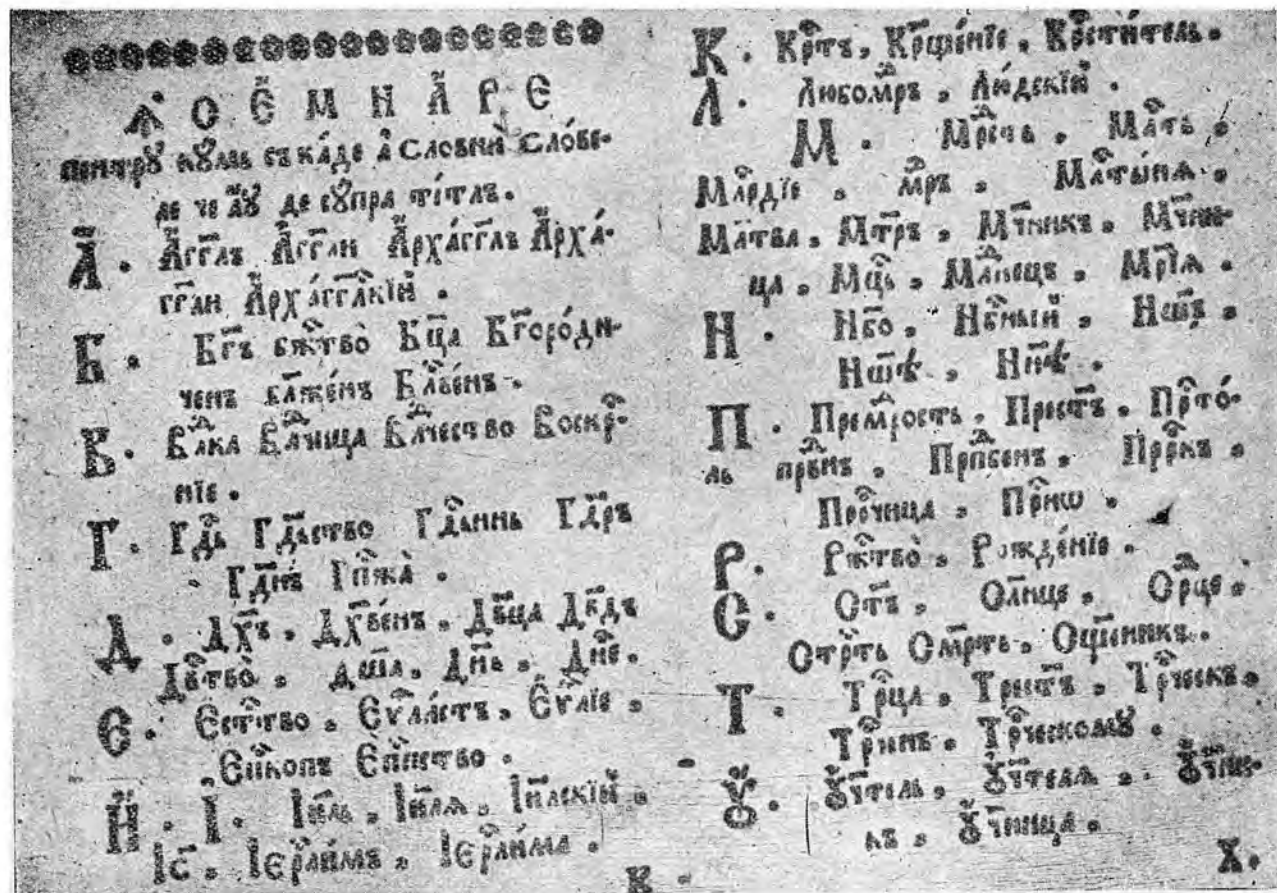 Ꙟ҆ О Е҆ М Н А҆ Р Е
пентрꙋ кꙋмь съ ка́де а҆ словенѝ сло́ве-
ле че а҆ꙋ де сꙋпра ти́тлъ.
А҆ . А҆гг҃лъ А҆гг҃ли А҆рха́гг҃лъ А҆рха́-
гг҃ли А҆рха́гг҃лскїй .
Б . Бг҃ъ бж҃тво̀ Бц҃а Бг҃оро́ди-
ченъ бл҃же́нъ Бл҃ве́нъ .
В . Влⷣка Влⷣчица Влⷣчество Воскрⷭ-
нїе .
Г . Гдⷭь Гдⷭьство Гдⷭьинь Гдⷭрь
Гдⷭнъ Гпⷭжа̀ .
Д . Дх҃ъ . Дх҃ве́нъ . Дв҃ца Дв҃дъ
Двⷭтво̀ . Дш҃а . Дн҃ь . Днⷭе .
Є . Єстⷭтво . Єѵⷢ҇ли́стъ . Єѵⷢ҇лїе .
Єпⷭкопъ Єпⷭпство .
И҆ . І҆ . Іи҃ль . Іи҃лѧ . Іи҃лскїй .
Іс҃ . Іерⷭли́мъ . Іерⷭли́ма .
К .
К . Крⷭтъ , Крⷭще́нїе , Крⷭти́тель .
Л . Любомⷣръ . Лю́дскїй .
М . Мрⷣсть . Млⷭть .
Млⷭрдїе . мⷣръ . Млⷭтынѧ .
Мл҃тва . Мт҃ръ . Мч҃никъ . Мч҃ни-
ца . Мцⷭь . Млⷣнецъ . Мр҃їѧ .
Н . Нб҃о . Нбⷭный . Нш҃ъ .
Нш҃ѣ . Нн҃ѣ .
П . Премⷣрость . Прест҃ъ . Прⷭто́-
ль прв҃нъ . Прпⷣбенъ . Прⷪ҇ркъ .
Прⷪ҇чица . Прⷭнѡ .
Р . Ржⷭтво̀ . Рожде́нїе .
С . Ст҃ъ . Сл҃нце . Срⷣце .
Стрⷭть См҃рть . Сщ҃енникъ .
Т . Трⷪ҇ца . Трист҃ъ . Трⷪ҇ческъ .
Трⷪ҇чнъ . Трⷪ҇ческомꙋ .
Ꙋ . Ꙋч҃тель . Ꙋч҃телѧ . Ꙋч҃ни-
къ . Ꙋч҃ница .
Х .